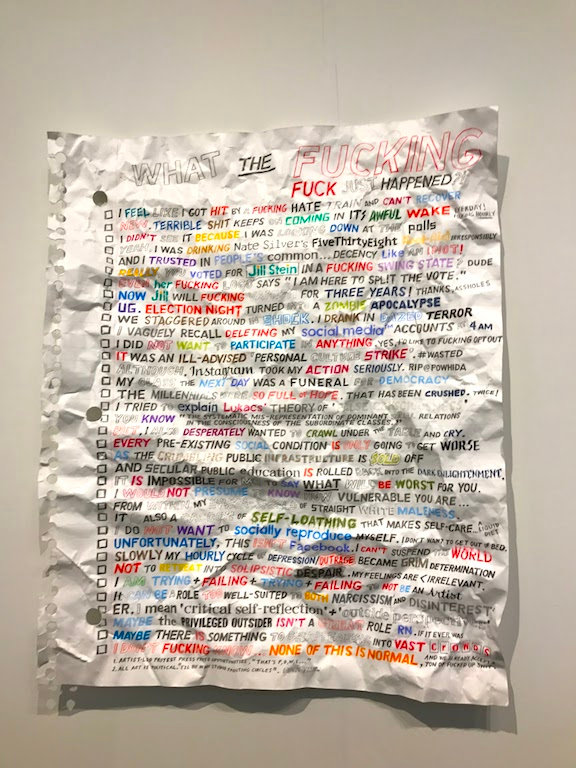 WHAT THE FUCKING
FUCK JUST HAPPENED?!
I FEEL LIKE I GOT HIT BY A FUCKING HATE TRAIN AND CAN'T RECOVER
NEW, TERRIBLE SHIT KEEPS ON COMING IN ITS AWFUL WAKE EVERYDAY! HOURLY
I DIDN'T SEE IT BECAUSE I WAS LOOKING DOWN AT THE polls
YEAH. I WAS DRINKING Nate Silver's FiveThirtyEight IRRESPONSIBLY
AND I TRUSTED IN PEOPLE'S common... DECENCY LIKE AN IDIOT!
REALLY YOU VOTED FOR Jill Stein IN A FUCKING SWING STATE? DUDE
EVEN her FUCKING LOGO SAYS "I AM HERE TO SPLIT THE VOTE."
NOW Jill WILL FUCKING FOR THREE YEARS! THANKS, ASSHOLES
UG. ELECTION NIGHT TURNED INTO A ZOMBIE APOCALYPSE
WE STAGGERED AROUND IN SHOCK. I DRANK IN DAZED TERROR
I VAGUELY RECALL DELETING MY "social media" ACCOUNTS @ 4 AM
I DID NOT WANT TO PARTICIPATE IN ANYTHING. YES, I'D LIKE TO FUCKING OPT OUT
IT WAS AN ILL-ADVISED "PERSONAL CULTURE STRIKE". #WASTED
ALTHOUGH, Instagram TOOK MY ACTION SERIOUSLY. RIP@POWHIDA
MY CLASS THE NEXT DAY WAS A FUNERAL FOR DEMOCRACY
THE MILLENNIALS WERE SO FULL OF HOPE. THAT HAS BEEN CRUSHED. TWICE!
I TRIED TO explain Lukacs' THEORY OF
YOU KNOW "THE SYSTEMATIC MIS-REPRESENTATION OF DOMINANT SOCIAL RELATIONS IN THE CONSCIOUSNESS OF THE SUBORDINATE CLASSES."
BUT, I ALSO DESPERATELY WANTED TO CRAWL UNDER THE TABLE AND CRY.
EVERY PRE-EXISTING SOCIAL CONDITION IS ONLY GOING TO GET WORSE
AS THE CRUMBLING PUBLIC INFRASTRUCTURE IS SOLD OFF
AND SECULAR PUBLIC education IS ROLLED BACK INTO THE DARK ENLIGHTENMENT.
IT IS IMPOSSIBLE FOR ME TO SAY WHAT WILL BE WORST FOR YOU.
I WOULD NOT PRESUME TO KNOW HOW VULNERABLE YOU ARE...
FROM WITHIN MY OF STRAIGHT WHITE MALENESS.
IT ALSO A OF SELF-LOATHING THAT MAKES SELF-CARE.. A LIQUID DIET
I DO NOT WANT TO socially reproduce MYSELF. I DON'T WANT TO GET OUT OF BED.
UNFORTUNATELY, THIS ISN'T Facebook. I CAN'T SUSPEND THE WORLD
SLOWLY MY HOURLY CYCLE OF DEPRESSION/OUTRAGE BECAME GRIM DETERMINATION
NOT TO RETREAT INTO SOLIPSISTIC DESPAIR. MY FEELINGS ARE IRRELEVANT.
I AM TRYING + FAILING + TRYING + FAILING TO NOT BE AN Artist
IT CAN BE A ROLE TOO WELL-SUITED TO BOTH NARCISSISM AND DISINTEREST
ER, I mean 'critical self-reflection' + 'outside perspective'
MAYBE the PRIVILEGED OUTSIDER ISN'T A GREAT ROLE RN. IF IT EVER WAS
MAYBE THERE IS SOMETHING TO INTO VAST CROWDS
I DON'T FUCKING KNOW... NONE OF THIS IS NORMAL,
1. ARTIST-LED PROTEST PRESS PHOTO OPPORTUNITIES, "THAT'S P.O.M.E..."
2. ALL ART IS POLITICAL.